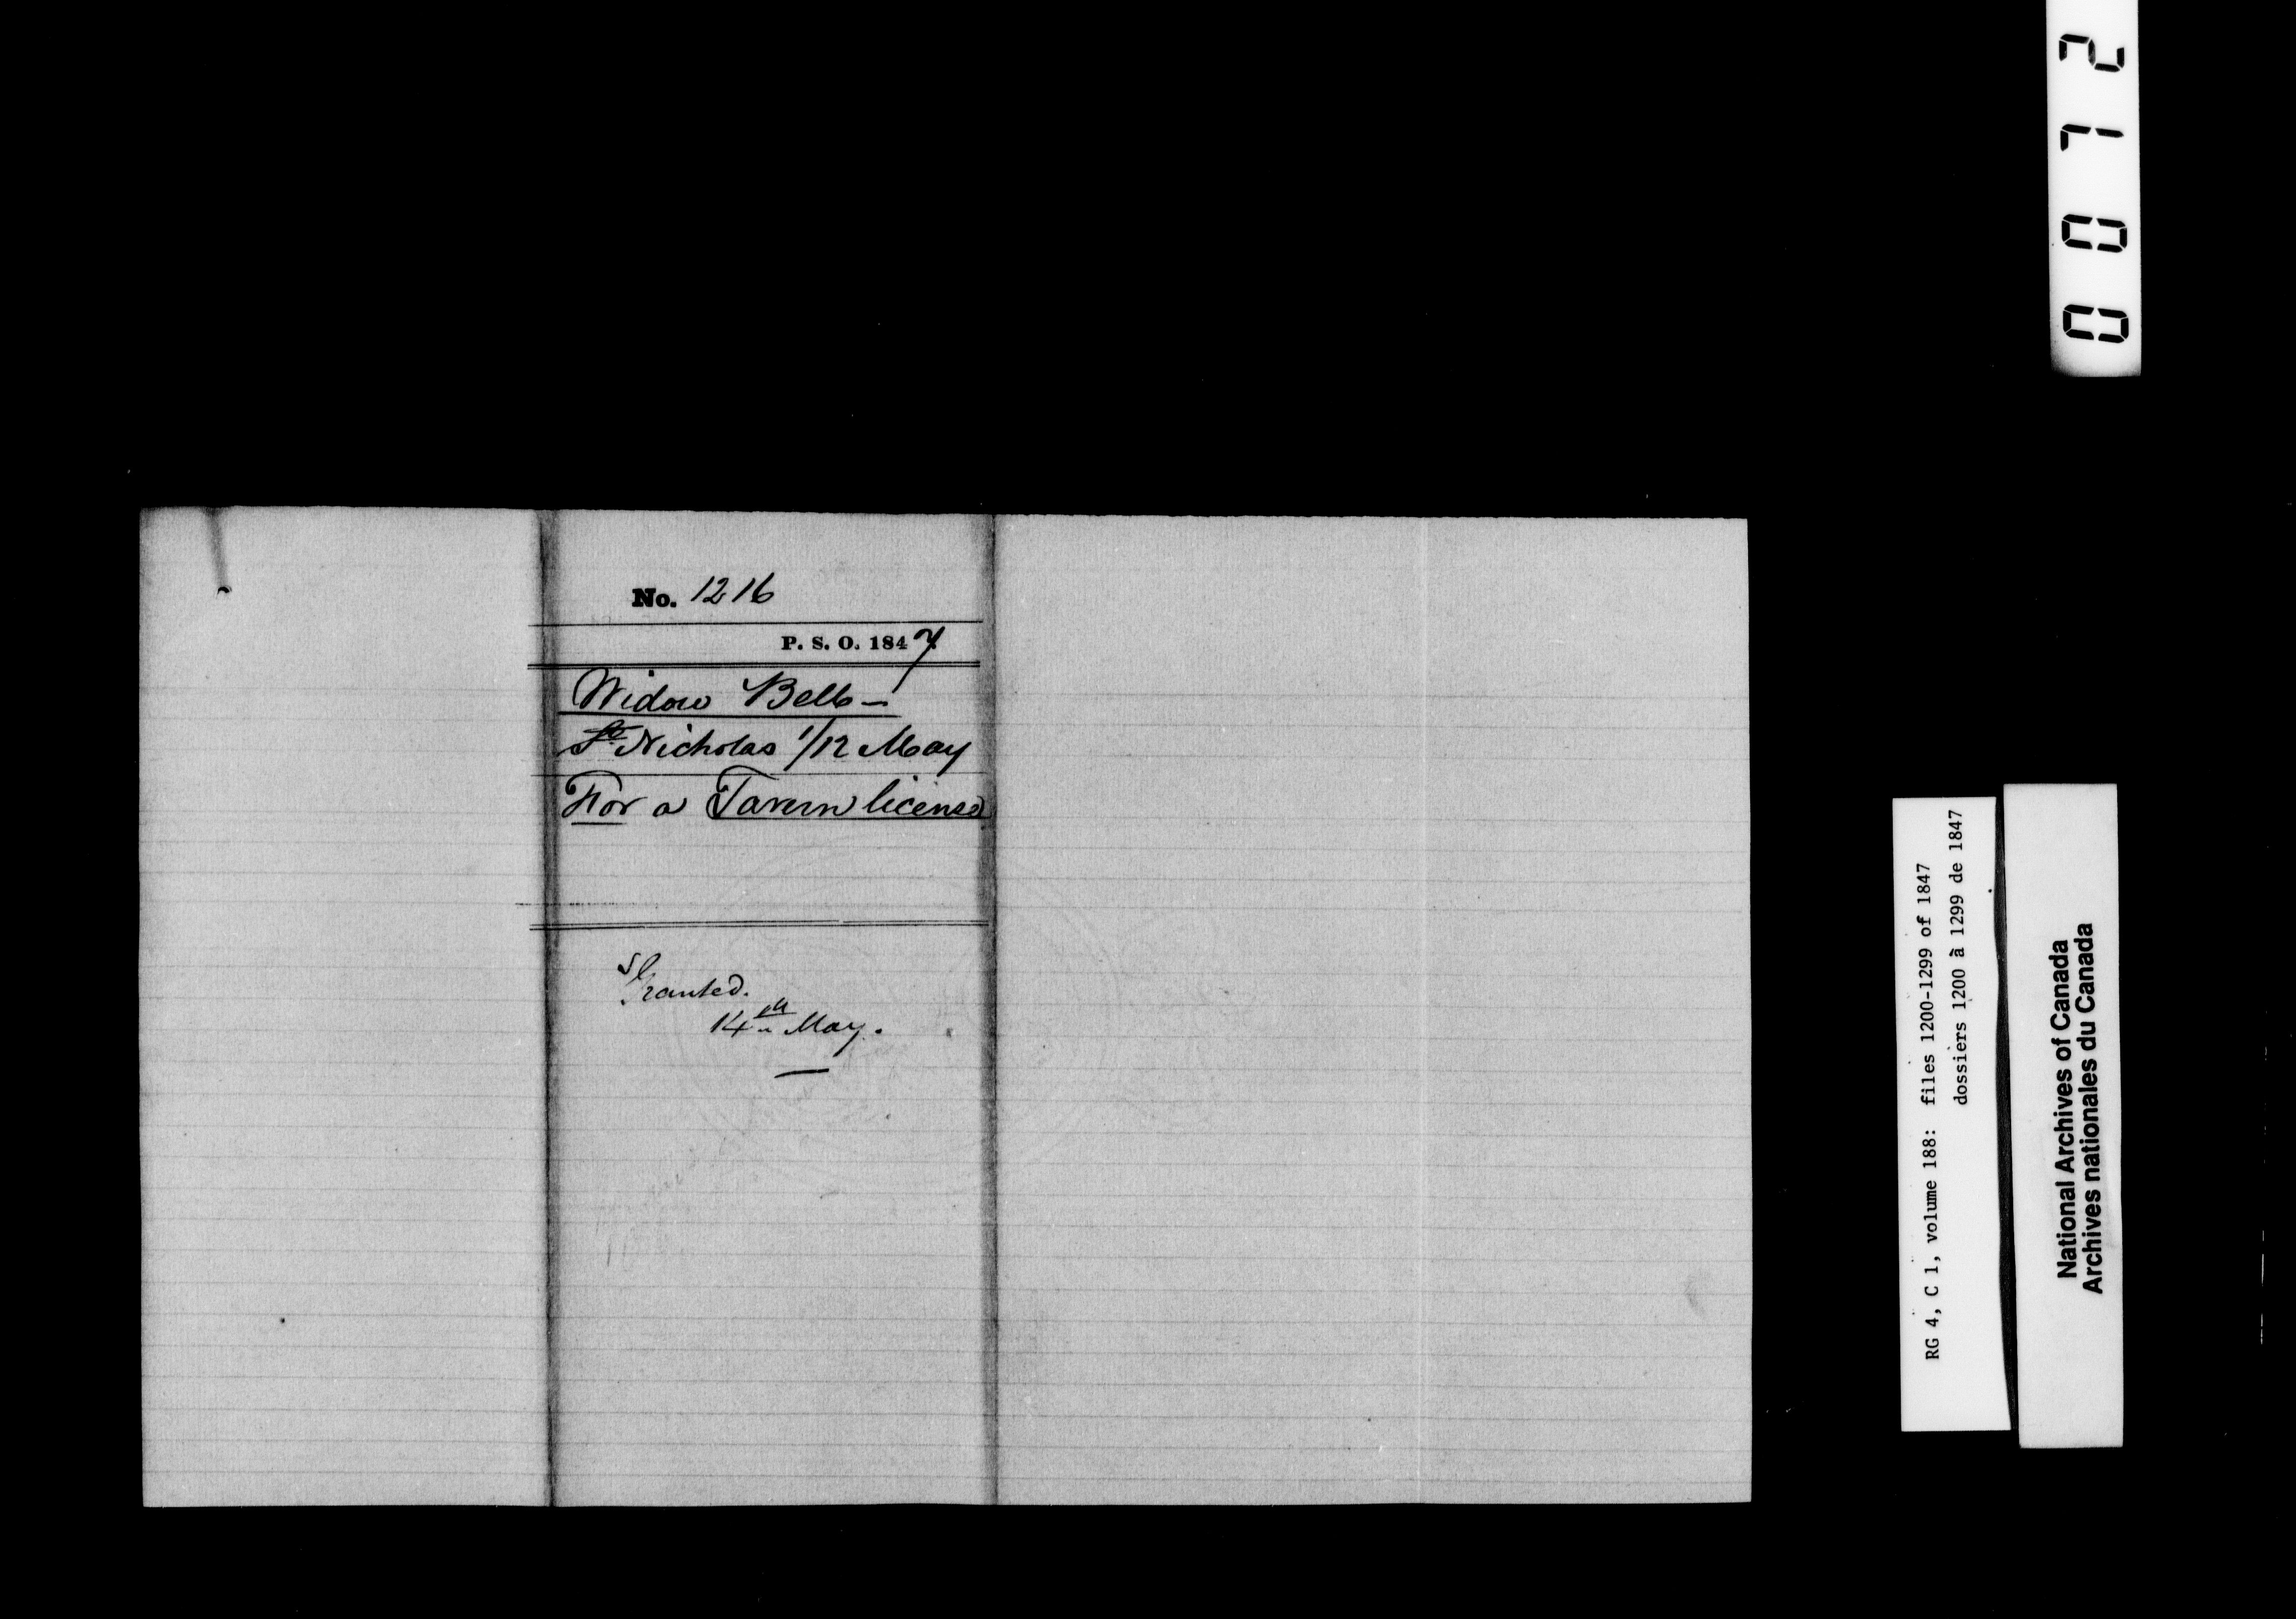 No. 1216
P. S. O. 1847.
Widow Bell —
St Nicholas 1/12 May
For a Tavern license
Granted.
14th May.
0072
RG 4, C 1, volume 188: files 1200-1299 of 1847
dossiers 1200 à 1299 de 1847
National Archives of Canada
Archives nationales du Canada